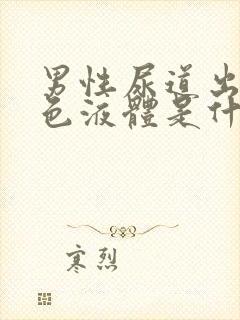 男性尿道出
色液體是什
寒烈